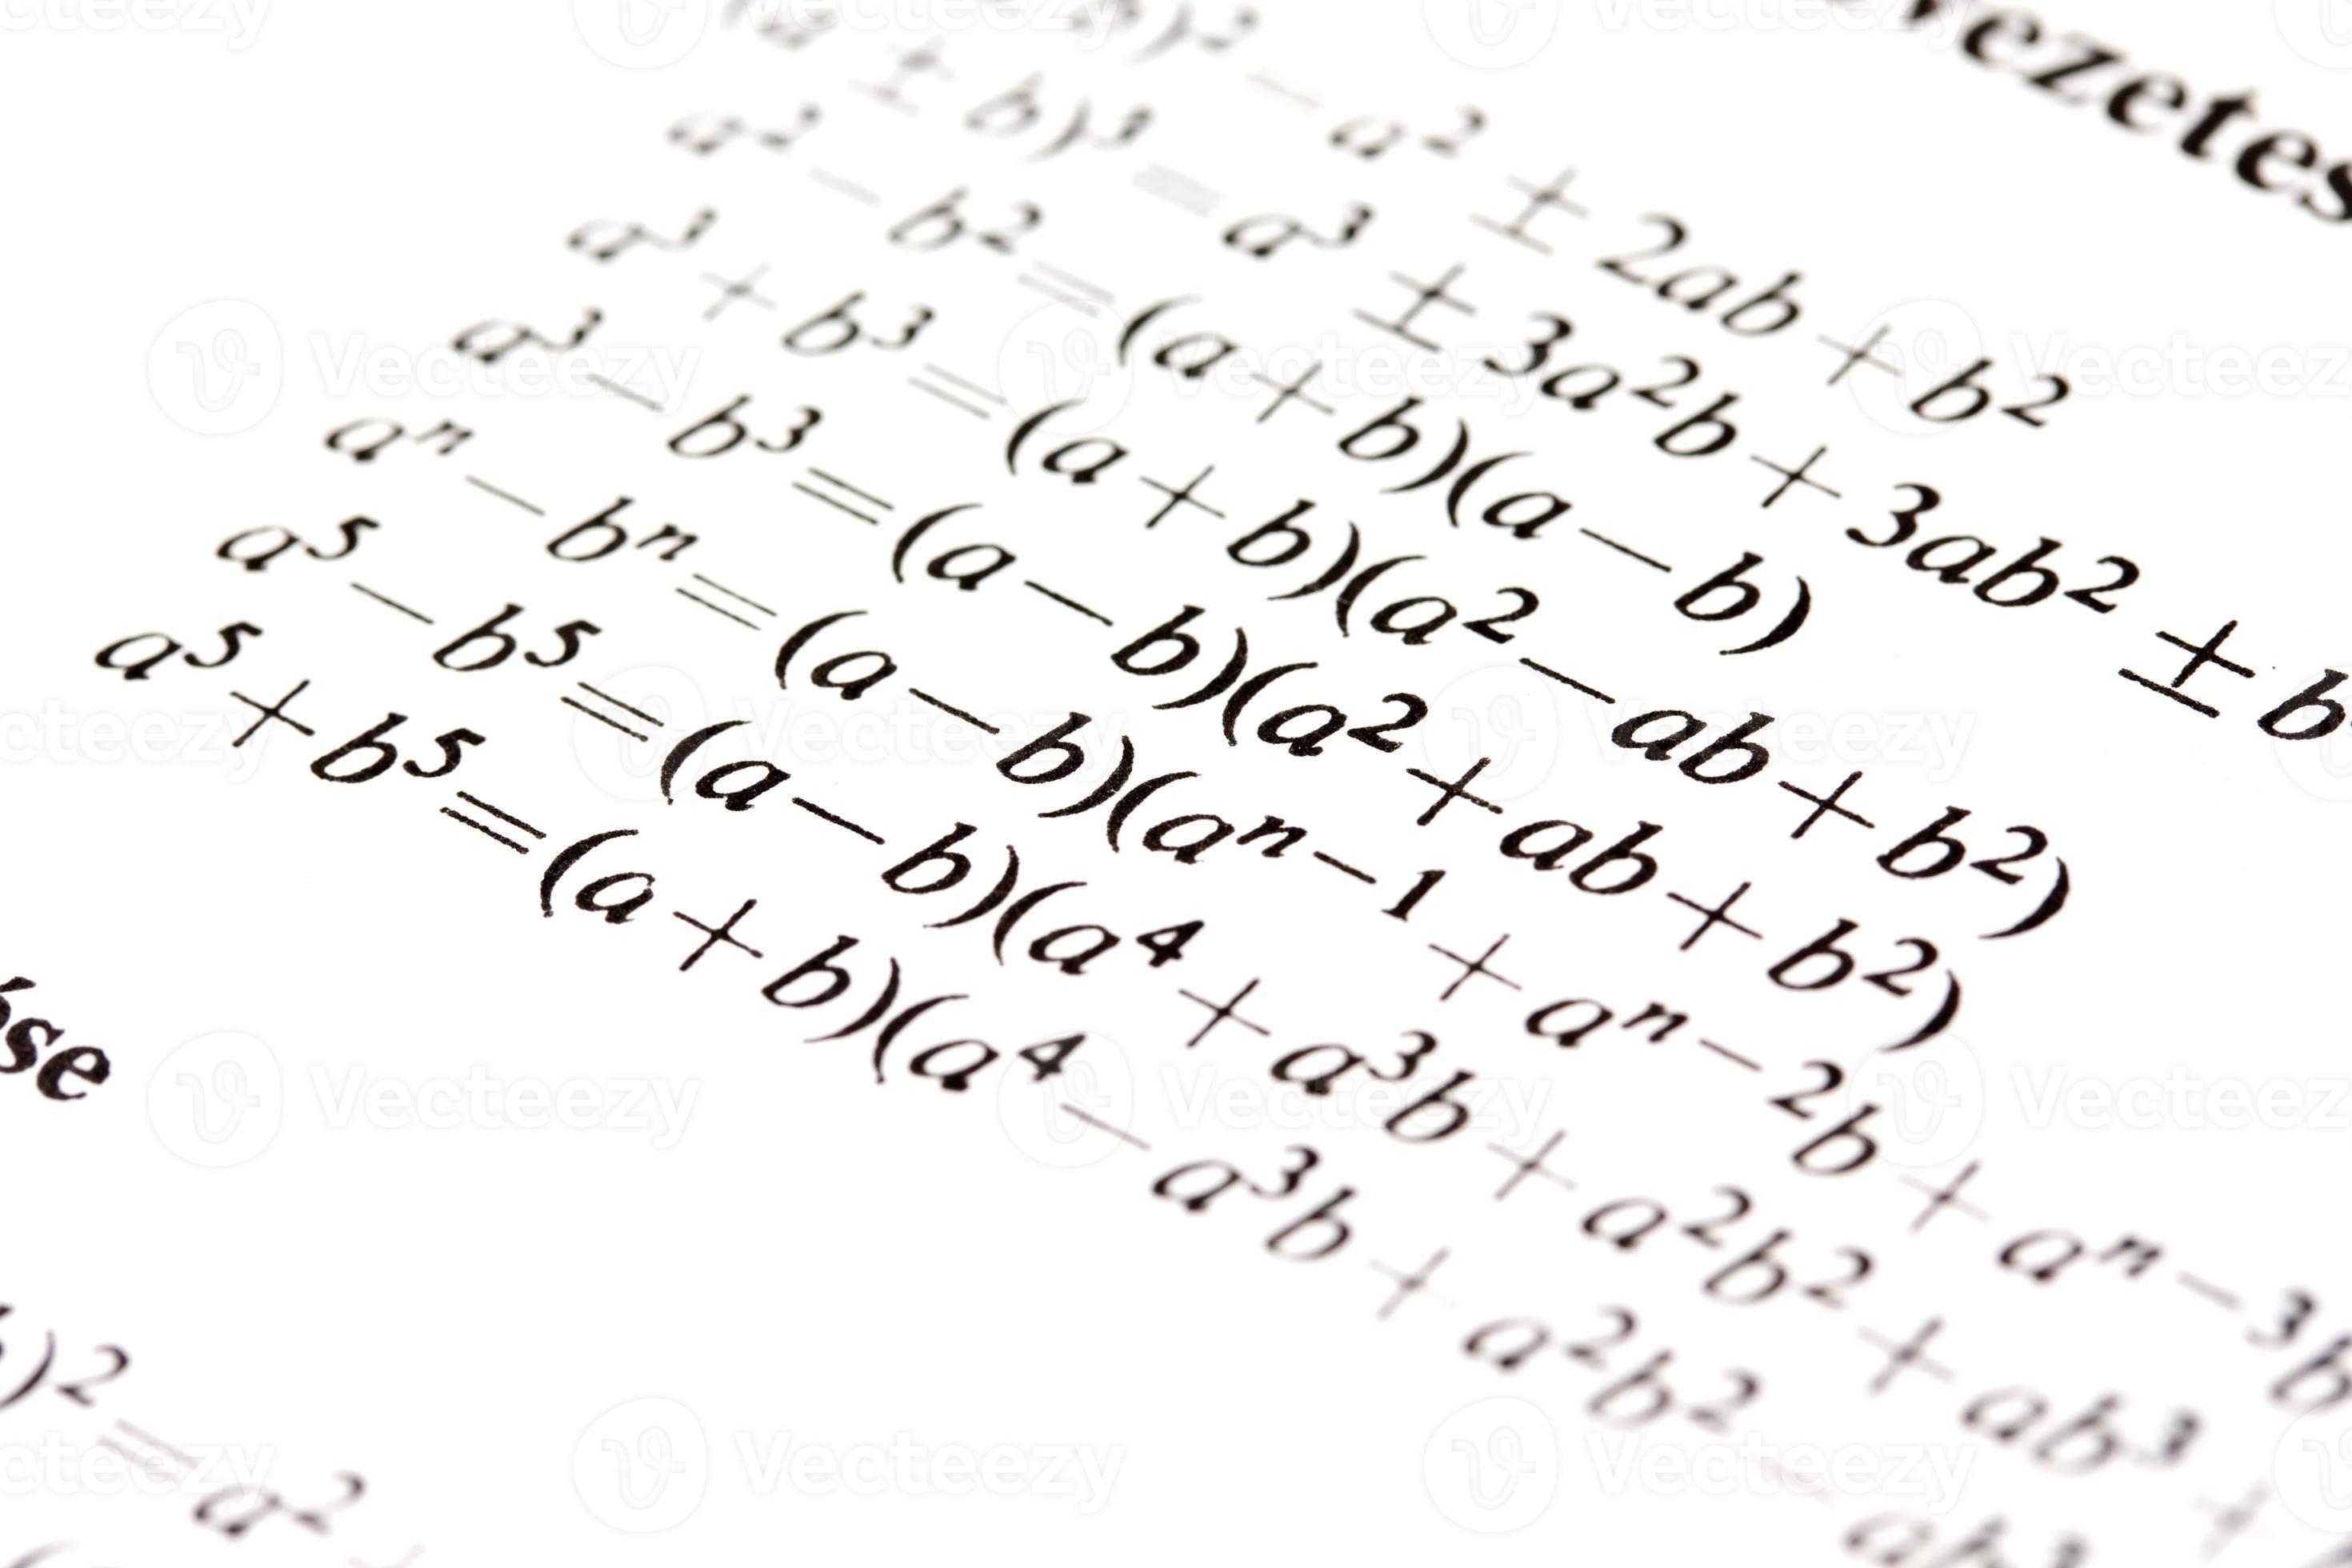 vezetes
(a ± b)² = a² ± 2ab + b²
(a ± b)³ = a³ ± 3a²b + 3ab² ± b
a² − b² = (a + b)(a − b)
a³ + b³ = (a + b)(a² − ab + b²)
a³ − b³ = (a − b)(a² + ab + b²)
aⁿ − bⁿ = (a − b)(aⁿ⁻¹ + aⁿ⁻²b + aⁿ⁻³b
a⁵ − b⁵ = (a − b)(a⁴ + a³b + a²b² + ab³ +
a⁵ + b⁵ = (a + b)(a⁴ − a³b + a²b² − ab³
ése
)² = a²